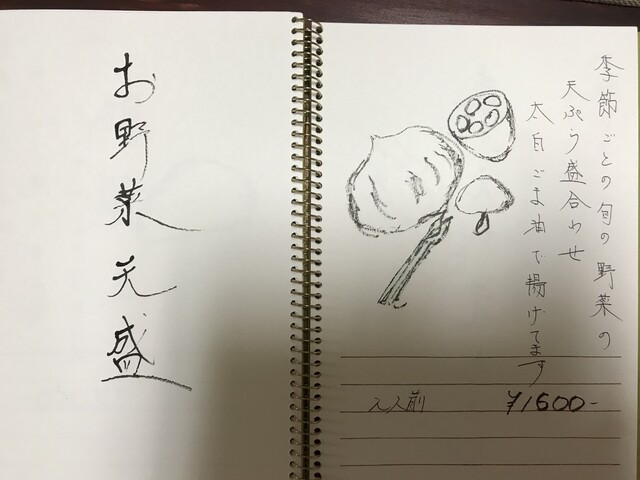 お野菜天盛
季節ごとの旬の野菜の
天ぷら盛合わせ
太白ごま油で揚げてます
2人前 ¥1600-